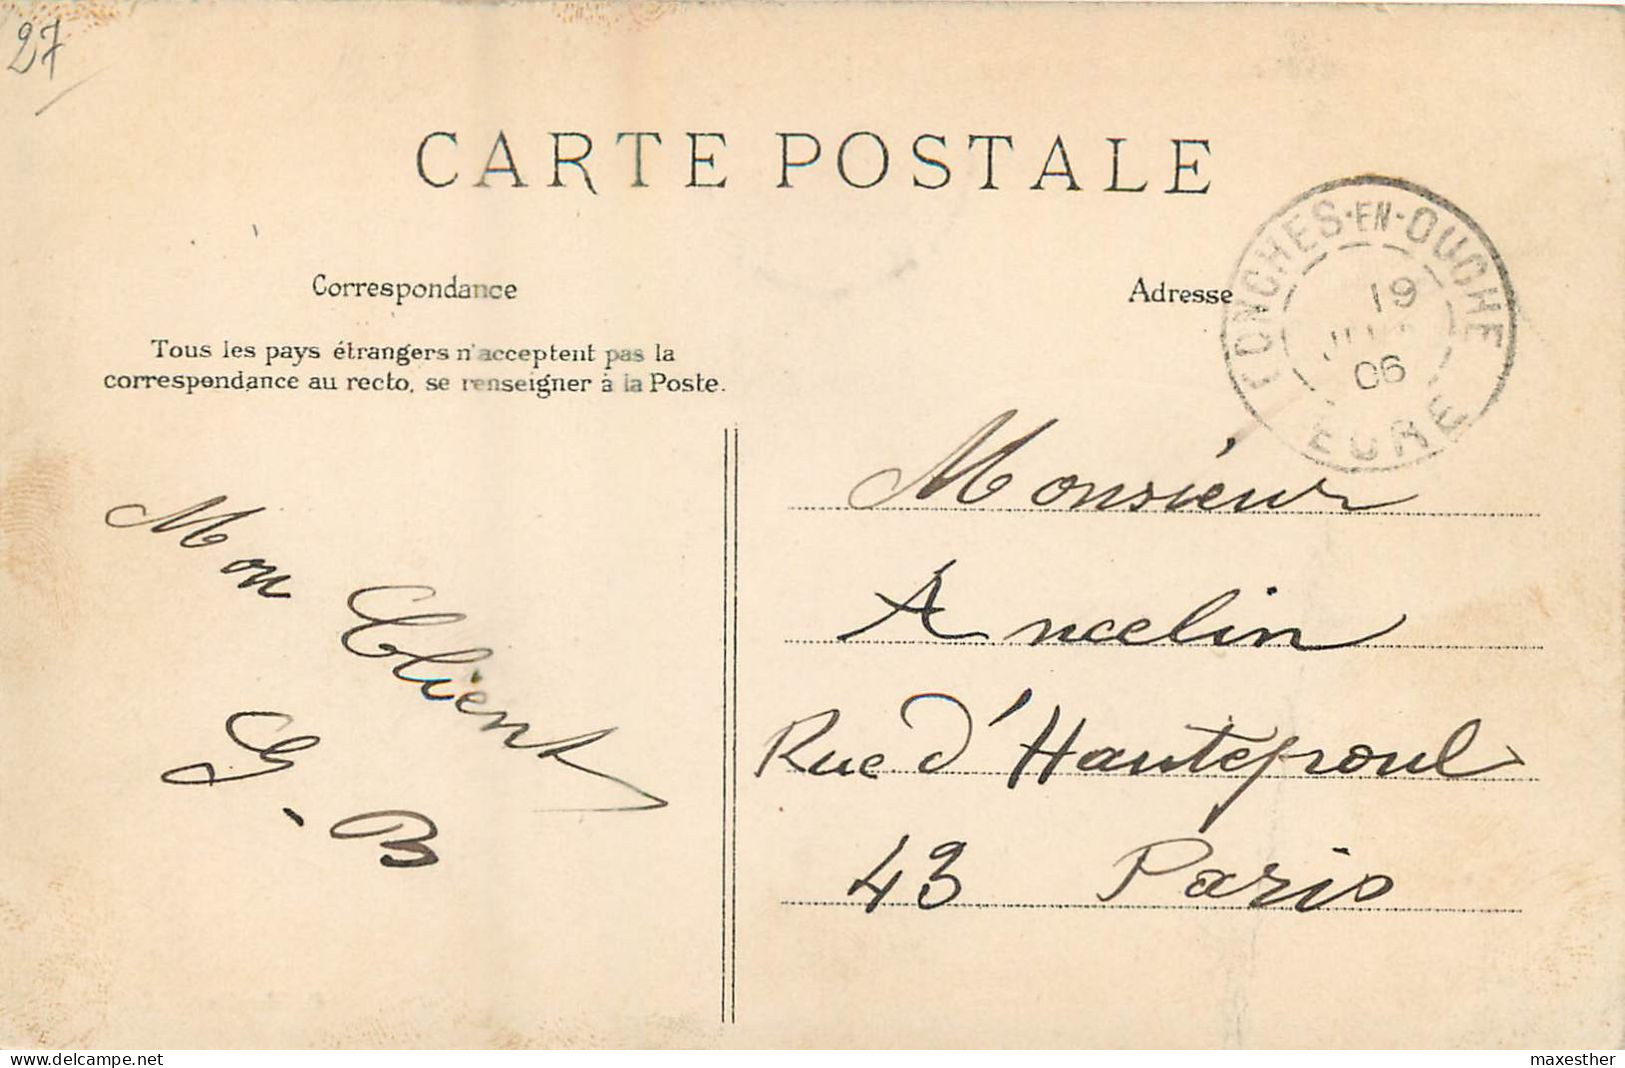 27
CARTE POSTALE
Correspondance
Tous les pays étrangers n'acceptent pas la
correspondance au recto, se renseigner à la Poste.
Mon Client
G-B
Adresse
CONCHES-EN-OUCHE
19
06
EURE
Monsieur
Ancelin
Rue d'Hautepoul
43 Paris
www.delcampe.net
maxesther